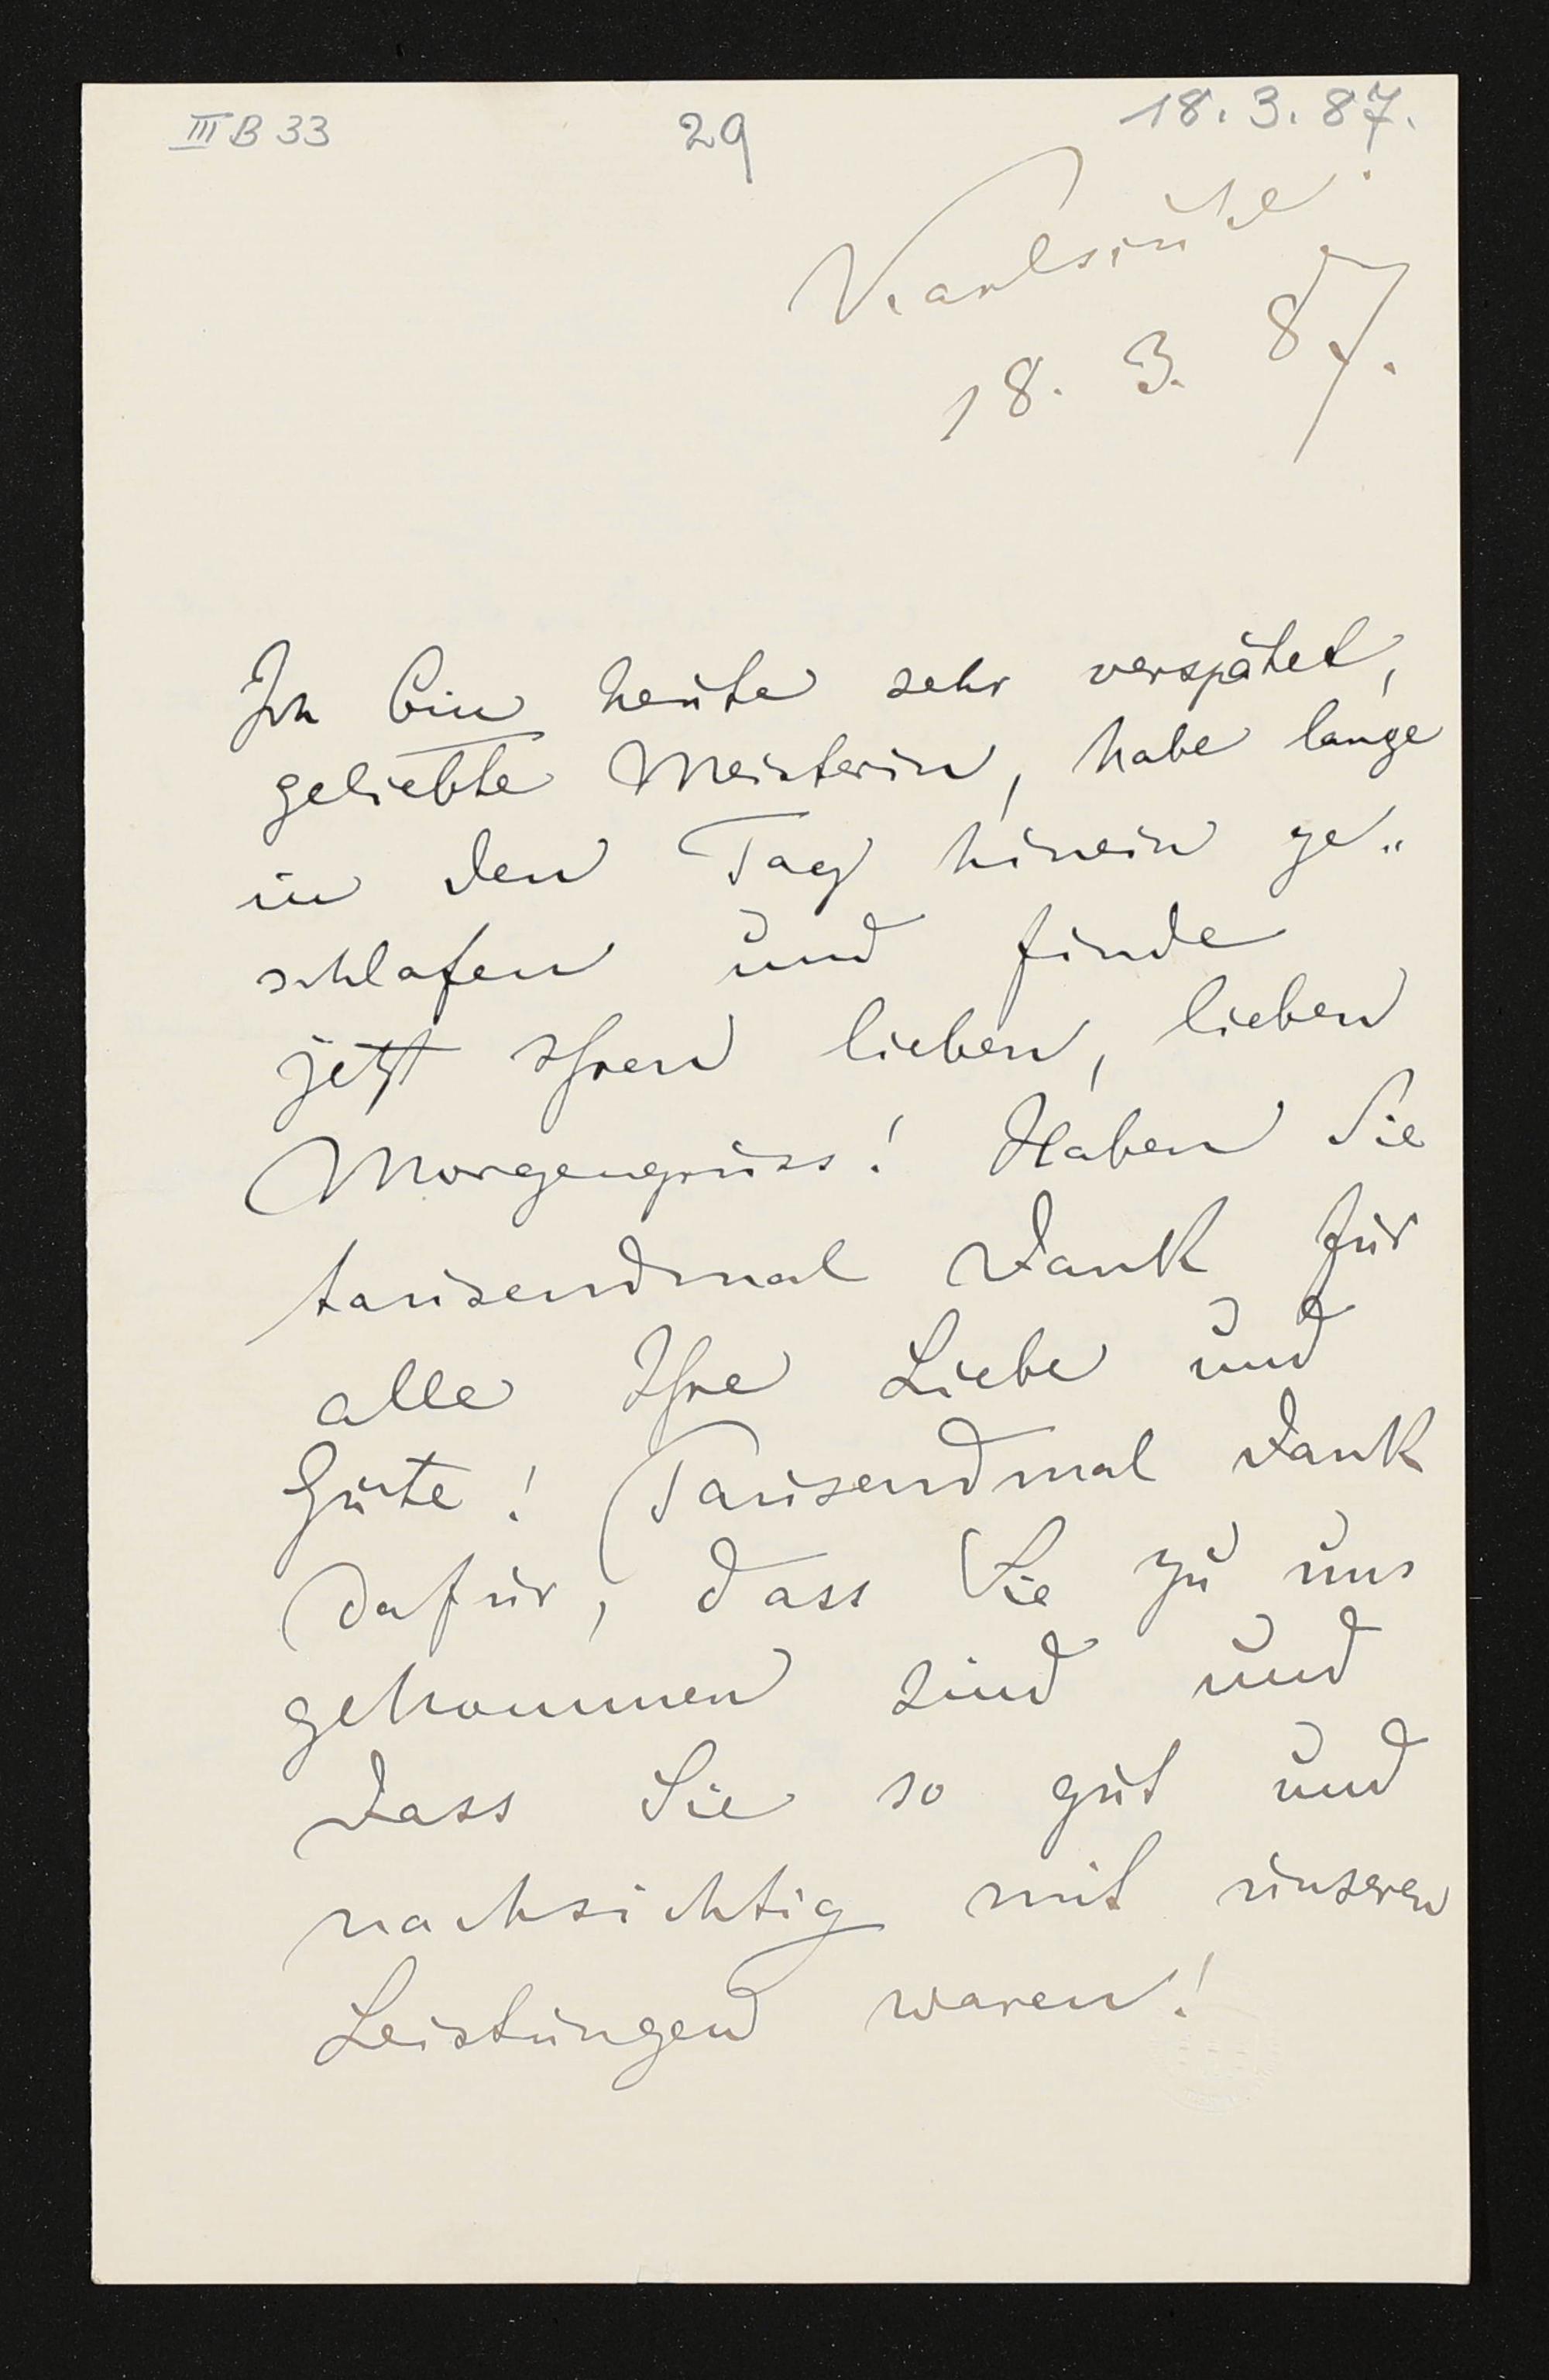 III B 33
29
18. 3. 87.
Karlsruhe
18. 3. 87.
Ich bin heute sehr verspätet,
geliebte Meisterin, habe lange
in den Tag hinein ge„
schlafen und finde
jetzt Ihren lieben, lieben
Morgengruss! Haben Sie
tausendmal Dank für
alle Ihre Liebe und
Güte! Tausendmal Dank
dafür, dass Sie zu uns
gekommen sind und
dass Sie so gut und
nachsichtig mit unseren
Leistungen waren!